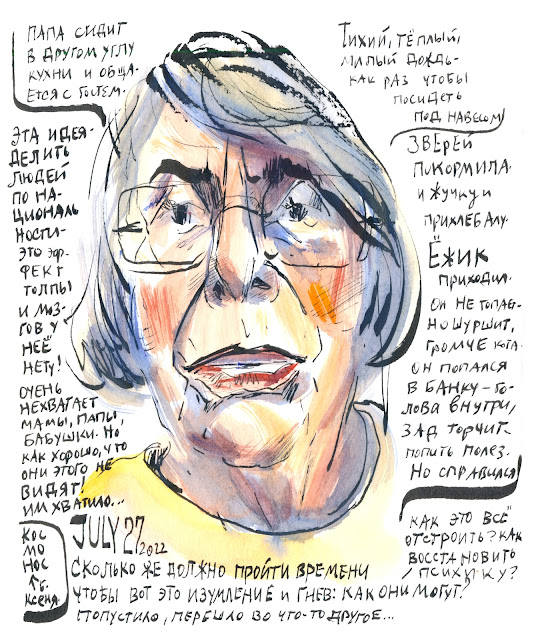 ПАПА СИДИТ
В ДРУГОМ УГЛУ
КУХНИ И ОБЩА-
ЕТСЯ С ГОСТЕМ.
ЭТА ИДЕЯ-
ДЕЛИТЬ
ЛЮДЕЙ
ПО НА-
ЦИОНАЛЬ
НОСТИ-
ЭТО ЭФ-
ФЕКТ
ТОЛПЫ
И МОЗ-
ГОВ У
НЕЁ
НЕТУ!
ОЧЕНЬ
НЕХВАТАЕТ
МАМЫ, ПАПЫ,
БАБУШКИ. НО
КАК ХОРОШО, ЧТО
ОНИ ЭТОГО НЕ
ВИДЯТ!
ИМ ХВАТИЛО...
ТИХИЙ, ТЁПЛЫЙ,
МИЛЫЙ ДОЖДЬ-
КАК РАЗ ЧТОБЫ
ПОСИДЕТЬ
ПОД НАВЕСОМ
ЗВЕРЕЙ
ПОКОРМИЛА.
И ЖУЧКУ И
ПРИХЛЕБАЛУ.
ЁЖИК
ПРИХОДИЛ.
ОН НЕ ТОПАЕТ-
НО ШУРШИТ,
ГРОМЧЕ КОТА.
ОН ПОПАЛСЯ
В БАНКУ - ГО-
ЛОВА ВНУТРИ,
ЗАД ТОРЧИТ-
ПОПИТЬ ПОЛЕЗ.
НО СПРАВИЛСЯ
КАК ЭТО ВСЁ
ОТСТРОИТЬ? КАК
ВОССТАНОВИТЬ
ПСИХИКУ?
КОС
МО
НОС
КСЕНЯ.
JULY 27 2022
СКОЛЬКО ЖЕ ДОЛЖНО ПРОЙТИ ВРЕМЕНИ
ЧТОБЫ ВОТ ЭТО ИЗУМЛЕНИЕ И ГНЕВ: КАК ОНИ МОГУТ?
ПОПУСТИЛО, ПЕРЕШЛО ВО ЧТО-ТО ДРУГОЕ...